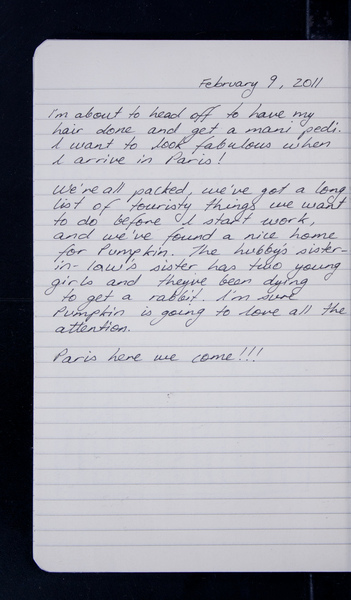 February 9, 2011
I'm about to head off to have my
hair done and get a mani pedi.
I want to look fabulous when
I arrive in Paris!
We're all packed, we've got a long
list of touristy things we want
to do before I start work,
and we've found a nice home
for Pumpkin. The hubby's sister-
in-law's sister has two young
girls and they've been dying
to get a rabbit. I'm sure
Pumpkin is going to love all the
attention.
Paris here we come!!!